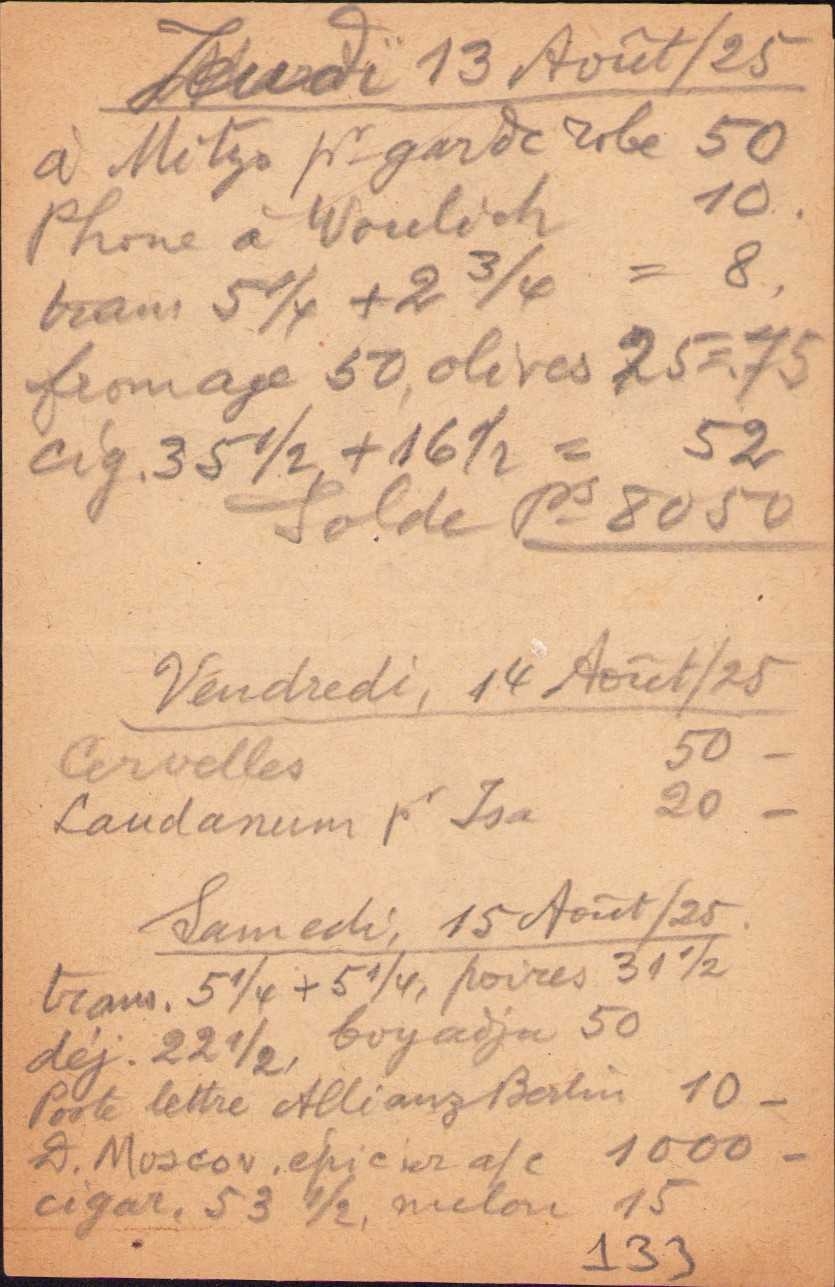 Jeudi 13 Août/25
à Mitzo pr garde robe 50
Phone à Woulich 10.
tram 5 1/4 + 2 3/4 = 8.
fromage 50, olives 25 = 75
cig. 35 1/2 + 16 1/2 = 52
Solde Ps 8050
Vendredi, 14 Août/25
Cervelles 50 –
Laudanum pr Isa 20 –
Samedi, 15 Août/25.
tram. 5 1/4 + 5 1/4, poires 31 1/2
déj. 22 1/2, boyadja 50
Poste lettre Allianz Berlin 10 –
D. Moscov. épicier a/c 1000 –
cigar. 53 1/2, melon 15
133